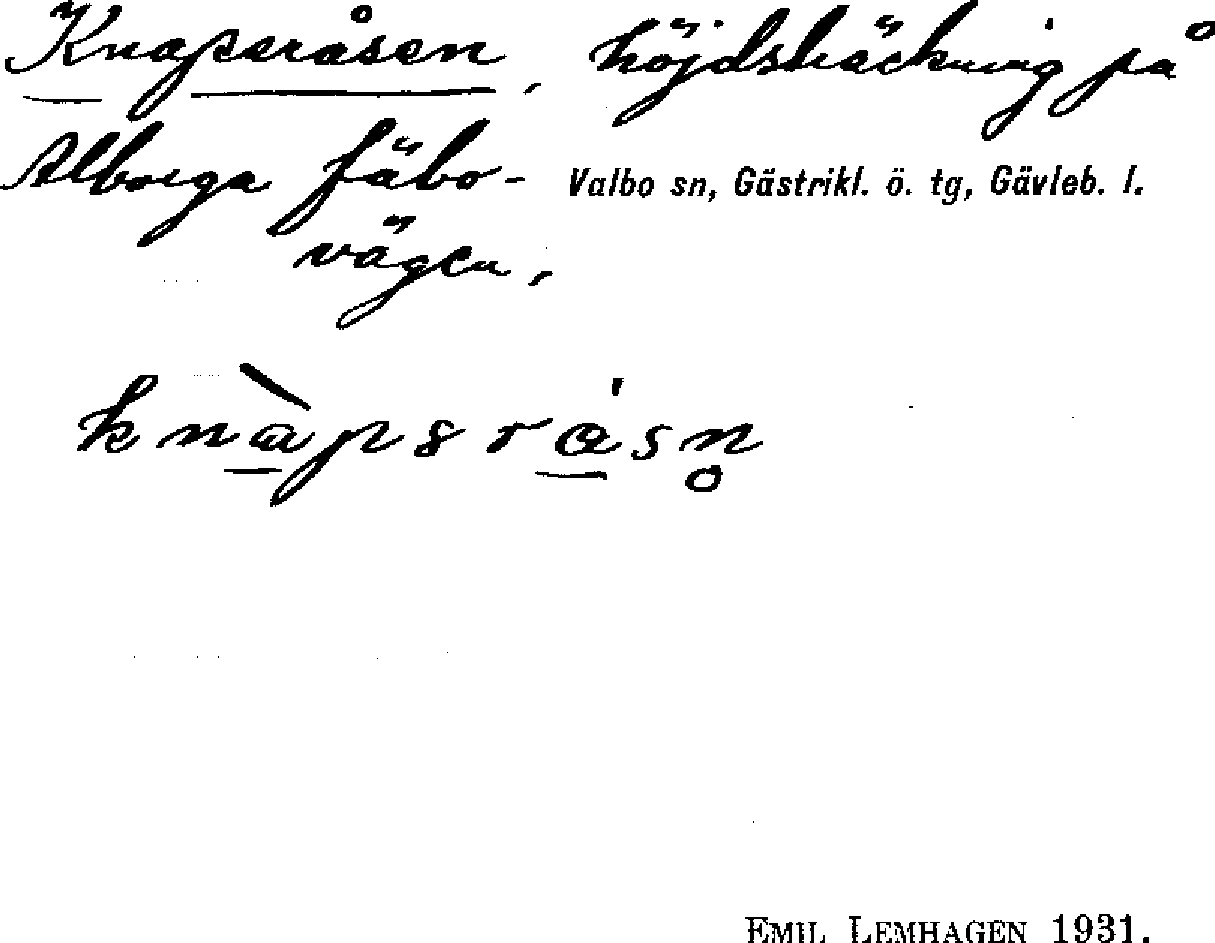 Knaperåsen, höjdsträckning på
Alborga fäbo- Valbo sn, Gästrikl. ö. tg, Gävleb. l.
vägen,
knàpsråsn̥
EMIL LEMHAGEN 1931.